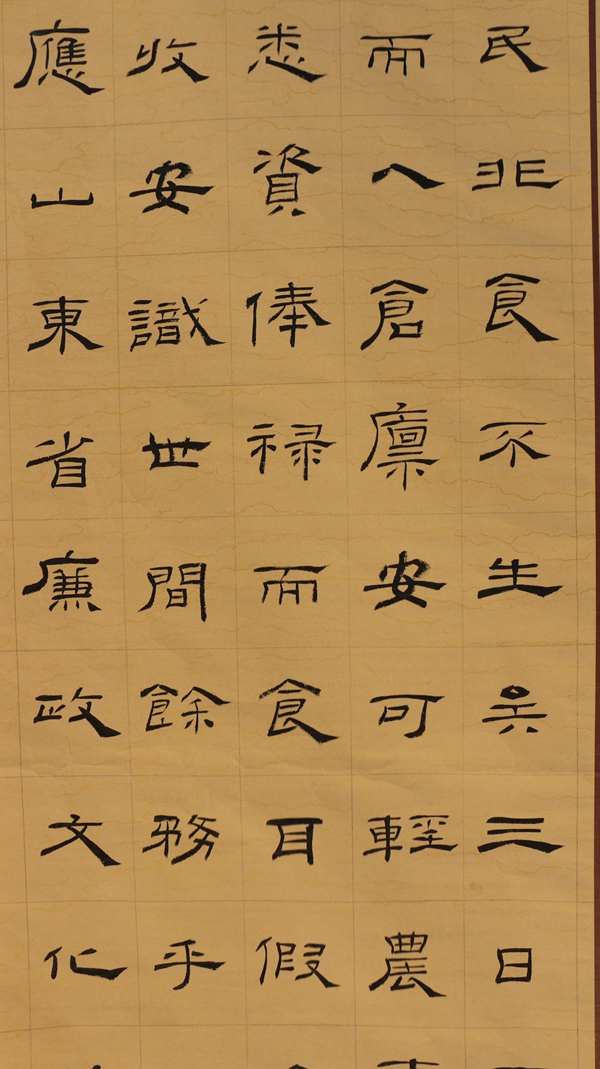 民非食不生矣三日
而入倉廪安可輕農
悉資俸禄而食耳假
收安識世間餘務乎
應山東省廉政文化